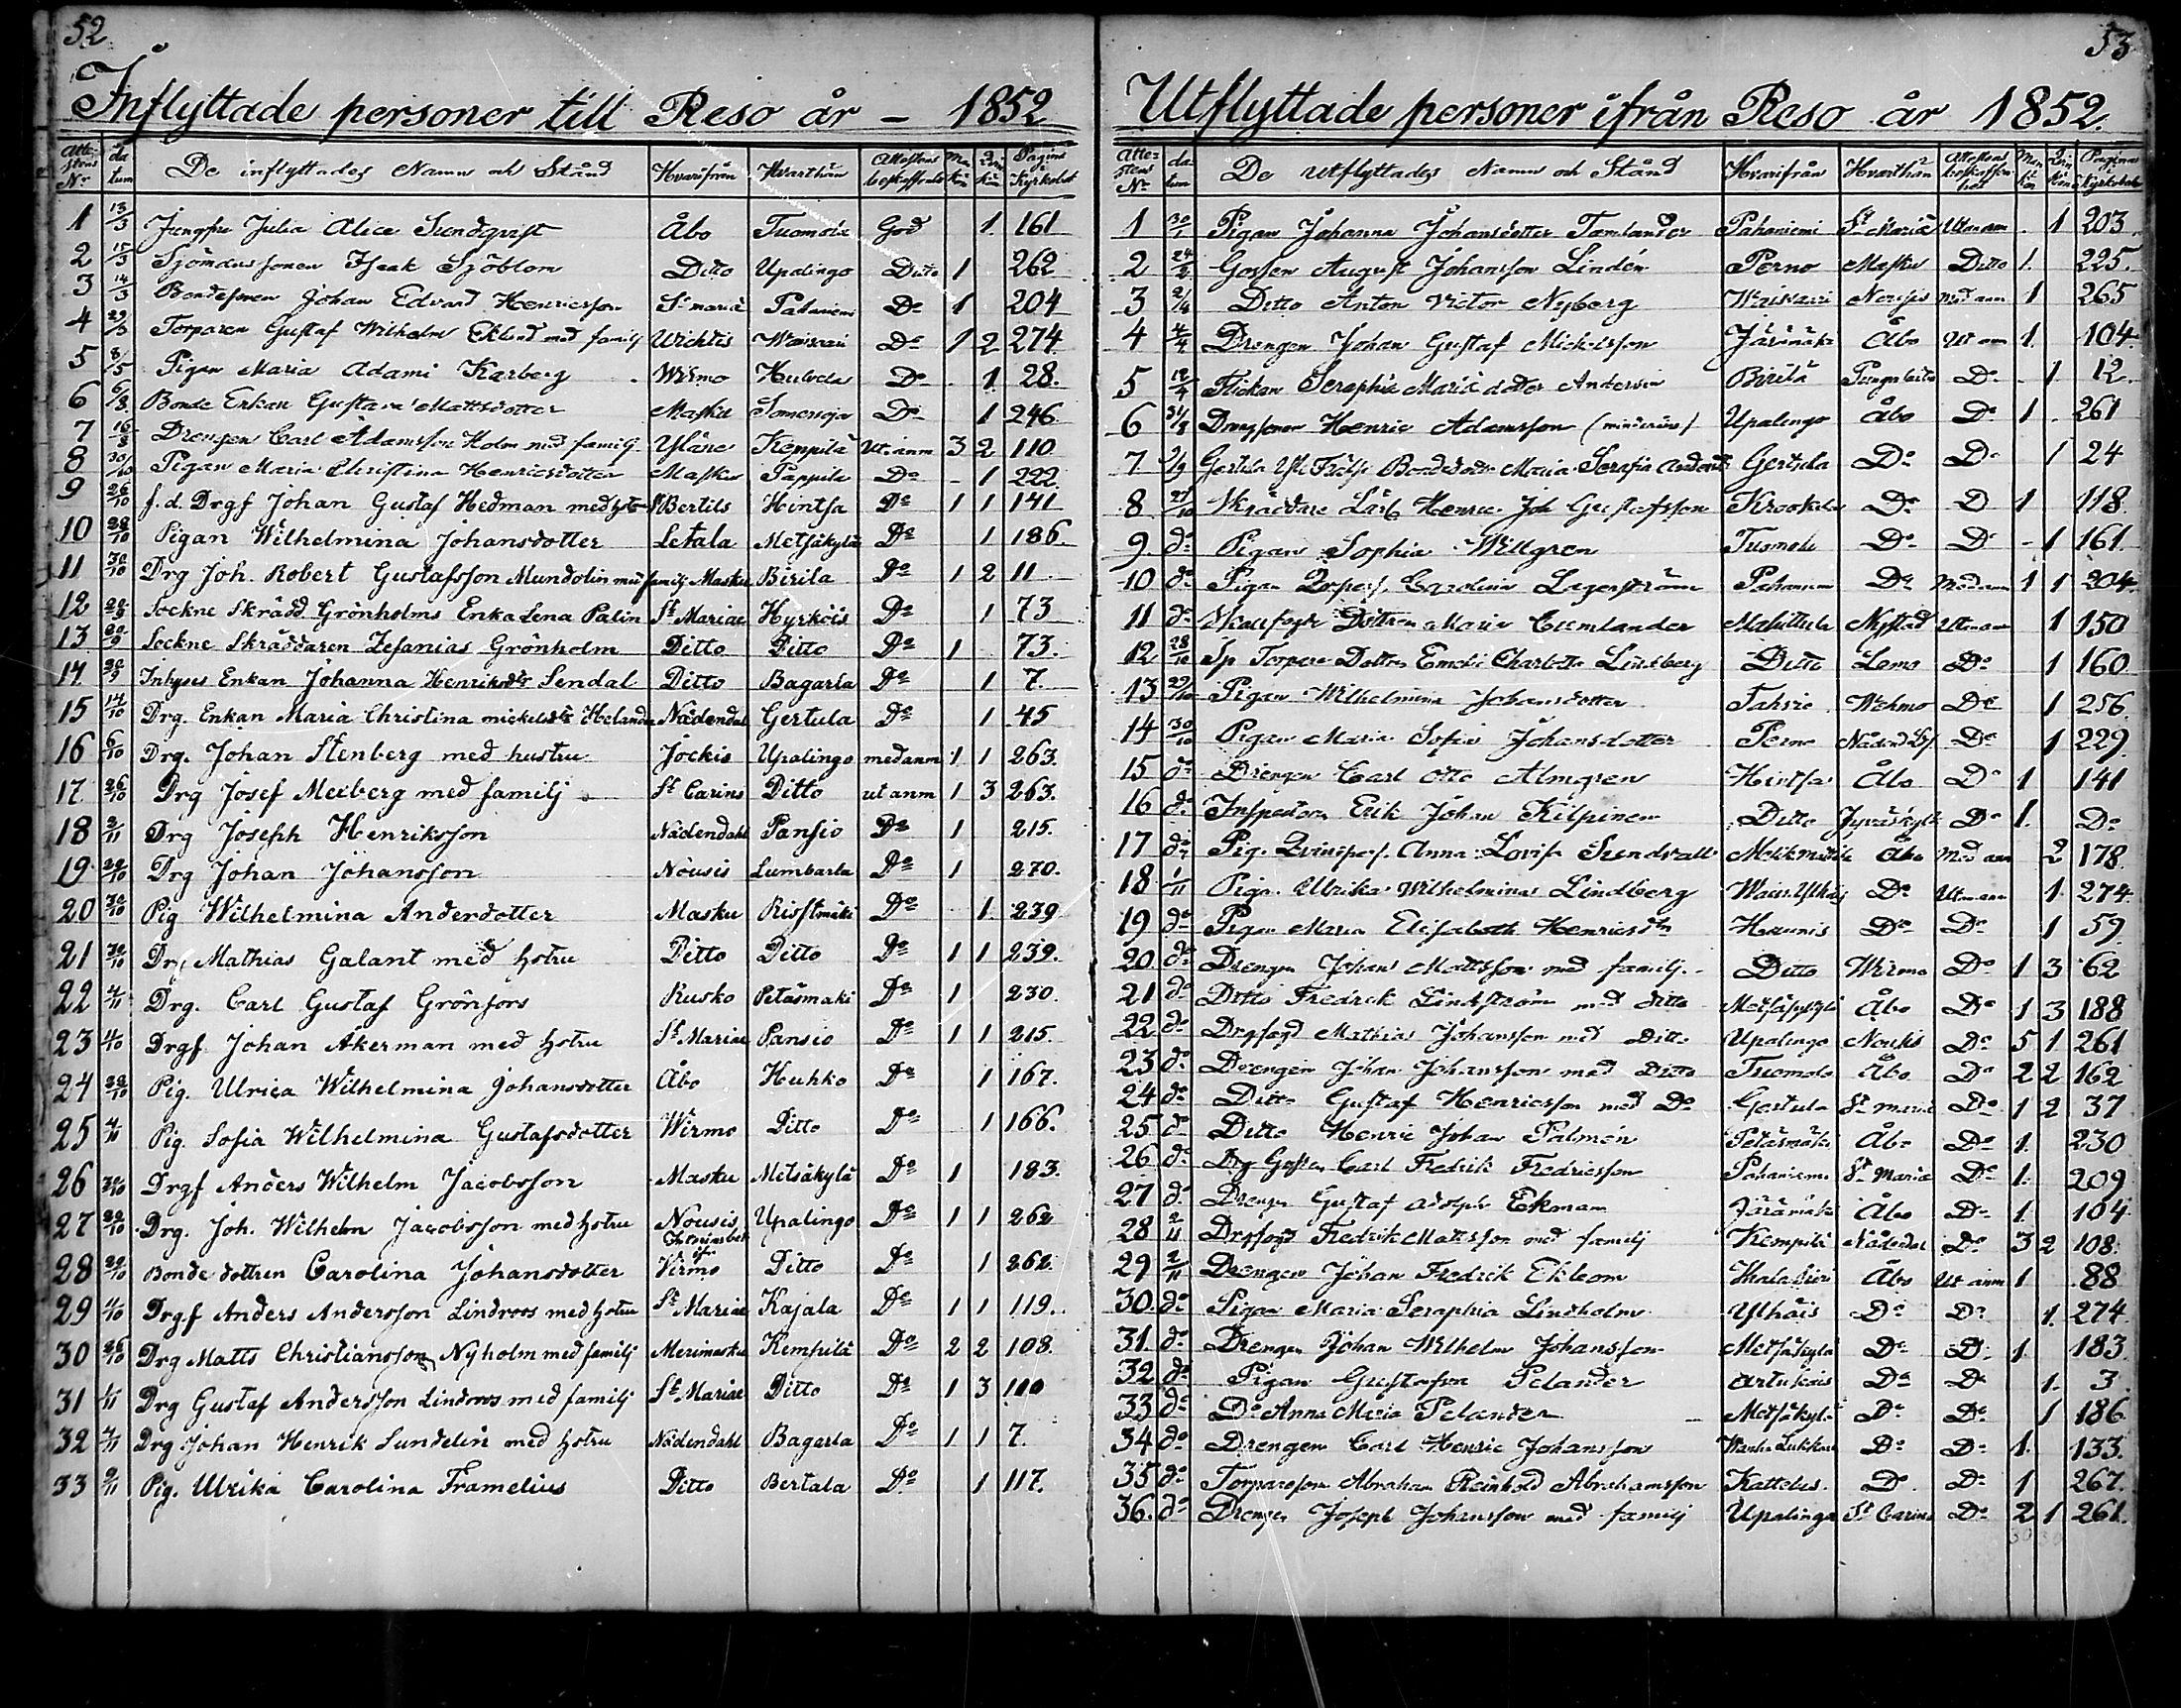 52
Inflyttade personer till Reso år – 1852
Attestens Nr datum De inflyttades Namn och Stånd Hvarifrån Hvarthän Attestens beskaffenh. Mankön Qvinkön Pagina i Kyrkobok
1 13/3 Jungfru Julia Alice Sundqvist Åbo Tuomola God 1 161
2 15/3 Sjömanssonen Isaak Sjöblom Ditto Upalingo Ditto 1 262
3 14/3 Bondesonen Johan Edvard Henricsson St mariæ Pahaniemi Do 1 204
4 29/3 Torparen Gustaf Wilhelm Eklund med familj Wichtis Waisvari Do 1 2 274
5 8/5 Pigan Maria Adami Karberg Wirmo Hulvela Do 1 28.
6 6/8 Bonde Enkan Gustava Mattsdotter Masku Somersoja Do 1 246
7 16/8 Drengen Carl Adamsson Holm med familj Yläne Kempilä Ut. anm 3 2 110
8 30/10 Pigan Maria Christina Henricsdotter Masku Pappila Do 1 222
9 26/10 f.d. Drgf Johan Gustaf Hedman med hstr St Bertils Hintsa Do 1 1 141
10 28/10 Pigan Wilhelmina Johansdotter Letala Metsäkylä Do 1 186.
11 30/10 Drg Joh. Robert Gustafsson Mundolin med familj Masku Birila Do 1 2 11
12 28/3 Sockne Skrädd. Grönholms Enka Lena Palin St Mariae Hyrköis Do 1 73
13 20/9 Sockne Skräddaren Zefanias Grönholm Ditto Ditto Do 1 73.
14 20/9 Inhyses Enkan Johanna Henriksdtr Sendal Ditto Bagarla Do 1 7.
15 14/10 Drg. Enkan Maria Christina mickelsdtr Helander Nådendal Gertula Do 1 45
16 6/10 Drg. Johan Stenberg med hustru Jockis Upalingo med anm 1 1 263.
17 26/10 Drg Josef Mexberg med familj St Carins Ditto ut anm 1 3 263.
18 2/11 Drg Joseph Henriksson Nådendahl Pansio Do 1 215.
19 29/10 Drg Johan Johansson Nousis Lumbarla Do 1 270.
20 30/10 Pig Wilhelmina Andersdotter Masku Ristimäki Do 1 239
21 30/10 Drg Mathias Galant med hstru Ditto Ditto Do 1 1 239.
22 4/11 Drg. Carl Gustaf Grönfors Rusko Petäsmäki Do 1 230.
23 4/10 Drgf Johan Åkerman med hstru St Mariae Pansio Do 1 1 215.
24 29/10 Pig. Ulrica Wilhelmina Johansdotter Åbo Huhko Do 1 167.
25 4/11 Pig. Sofia Wilhelmina Gustafsdotter Wirmo Ditto Do 1 166.
26 30/10 Drgf Anders Wilhelm Jacobsson Masku Metsäkylä Do 1 183.
27 29/10 Drg. Joh. Wilhelm Jacobsson med hstru Nousis Upalingo Do 1 1 262
28 29/10 Bonde dottren Carolina Johansdotter Virmo Ditto Do 1 262.
29 4/10 Drgf Anders Andersson Lindroos med hstru St Mariae Kajala Do 1 1 119.
30 26/10 Drg Matts Christiansson Nyholm med familj Merimasku Kempilä Do 2 2 108.
31 1/11 Drg Gustaf Andersson Lindroos med familj St Mariae Ditto Do 1 3 110
32 4/11 Drg Johan Henrik Sundelin med hstru Nådendahl Bagarla Do 1 1 7.
33 9/11 Pig. Ulrika Carolina Framelius Ditto Bertala Do 1 117.
53
Utflyttade personer ifrån Reso år 1852.
Attestens No datum De utflyttades Namn och Stånd Hvarifrån Hvarthän Attestens beskaffenhet Mankön Qvinkön Pagina i Kyrkobok
1 30/1 Pigan Johanna Johansdotter Tamlander Pahaniemi St Mariæ Utan anm 1 203
2 24/2 Gossen August Johansson Lindén Perno Masku Ditto 1. 225.
3 2/4 Ditto Anton Victor Nyberg Waisvari Nousis Med anm 1 265
4 4/4 Drengen Johan Gustaf Mickelsson Järämäki Åbo Ut anm 1 104.
5 19/4 Flickan Seraphia Maria dotter Andersin Birilä Do 1 12.
6 31/8 Drengsonen Henric Adamsson (minderårig) Upalingo Åbo Do 1 261
7 Gertula Maria Serafia Gertula Do Do 1 24
8 27/10 Skräddare Henric Joh Gustafsson Krookila Do D 1 118.
9 do Pigan Sophia Willgren Tuomola Do Do 1 161.
10 do Pigan Carolina Lagerström Pahaniemi Do Med anm 1 1 204.
11 do Dottren Maria Cumlander Mahittula Nystad Utan anm 1 150
12 28/10 Sp Torpare Dottren Charlotta Lindberg Ditto Lemo Do 1 160
13 29/10 Pigan Wilhelmina Johansdotter Tahvio Wehmo Do 1 256
14 30/10 Pigan Maria Sofia Johansdotter Perno Nådend. Do 1 229.
15 do Drengen Carl Otto Almgren Hintsa Åbo Do 1 141
16 do Inspectoren Erik Johan Kilpinen Ditto Jyväskylä Do 1. Do
17 do Pig. Anna Lovisa Sundvall Åbo Med anm 2 178.
18 1/11 Pigan Ulrika Wilhelmina Lindberg Do Utan anm 1. 274.
19 do Pigan Maria Elisabeth Henricsdtr Haunis Do Do 1 59
20 do Drengen Johan Mattsson med familj Ditto Wirmo Do 1 3 62
21 do Ditto Fredrik Lindström med ditto Metsäkylä Åbo Do 1 3 188
22 do Drgfogd Mathias Johansson med Ditto Upalingo Nousis Do 5 1 261
23 do Drengen Johan Johansson med Ditto Tuomola Åbo Do 2 2 162
24 do Ditto Gustaf Henricsson med Do Gertula St mariæ Do 1 2 37
25 do Ditto Henric Johan Palmén Petäsmäki Åbo Do 1. 230
26 do Drg Gossen Carl Fredrik Fredricsson Pahaniemi St Mariæ Do 1. 209
27 do Drengen Gustaf Adolph Ekman Järämäki Åbo Do 1 104.
28 2/11 Drgfogd Fredrik Mattsson med familj Kempilä Nådendal Do 3 2 108.
29 2/11 Drengen Johan Fredrik Ekbom Åbo Ut anm 1 88
30 do Pigan Maria Seraphia Lindholm Ylhäis Do Do 1. 274
31 do Drengen Johan Wilhelm Johansson Metsäkylä Do Do 1 183
32 do Pigan Gustafva Pelander Artukais Do Do 1. 3
33 do Do Anna Maria Pelander Metsäkylä Do Do 1 186
34 do Drengen Carl Henric Johansson Wanha Lukkari Do Do 1. 133.
35 do Torparesson Abraham Reinhold Abrahamsson Kattelus Do Do 1 267.
36. do Drengen Joseph Johansson med familj Upalingo St Carins Do 2 1 261.